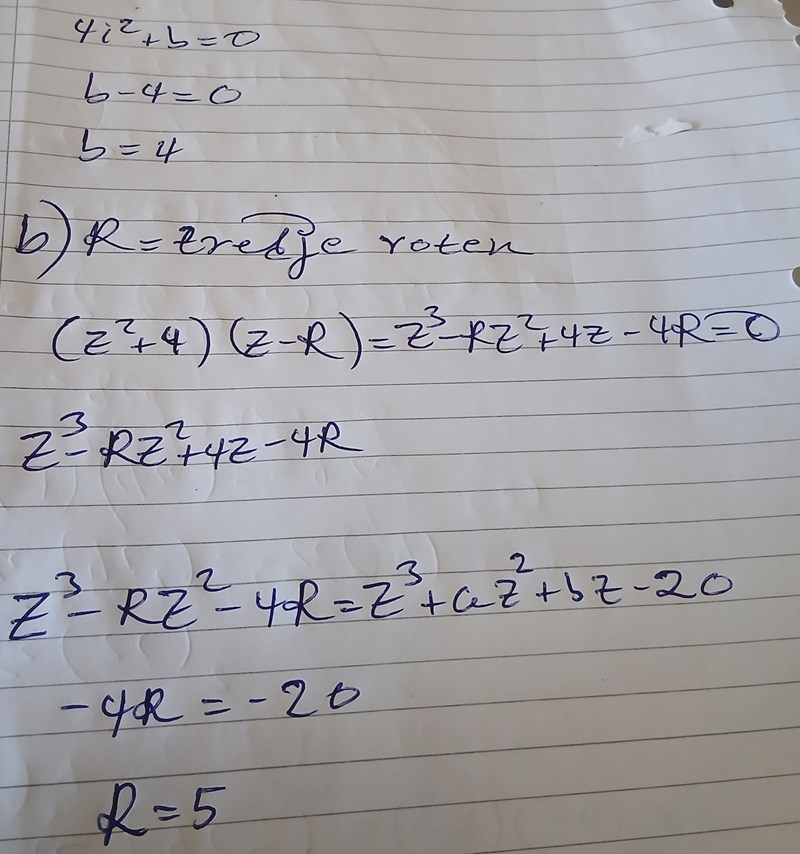 4i²+b=0
b-4=0
b=4
b) R=tredje roten
(z²+4)(z-R)=z³-Rz²+4z-4R=0
z³-Rz²+4z-4R
z³-Rz²-4R=z³+az²+bz-20
-4R=-20
R=5